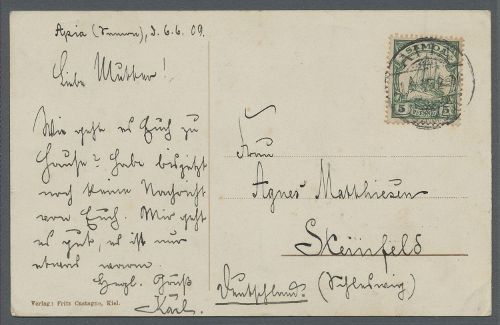 Apia (Samoa), d. 6.6.09.
Liebe Mutter!
Wie geht es Euch zu
Hause? Habe bis jetzt
noch keine Nachricht
von Euch. Mir geht
es gut, es ist nur
etwas warm.
Herzl. Gruß
Karl.
SAMOA
5 5
Frau
Agnes Matthiesen
Steinfeld
(Schleswig)
Deutschland.
Verlag: Fritz Castagne, Kiel.